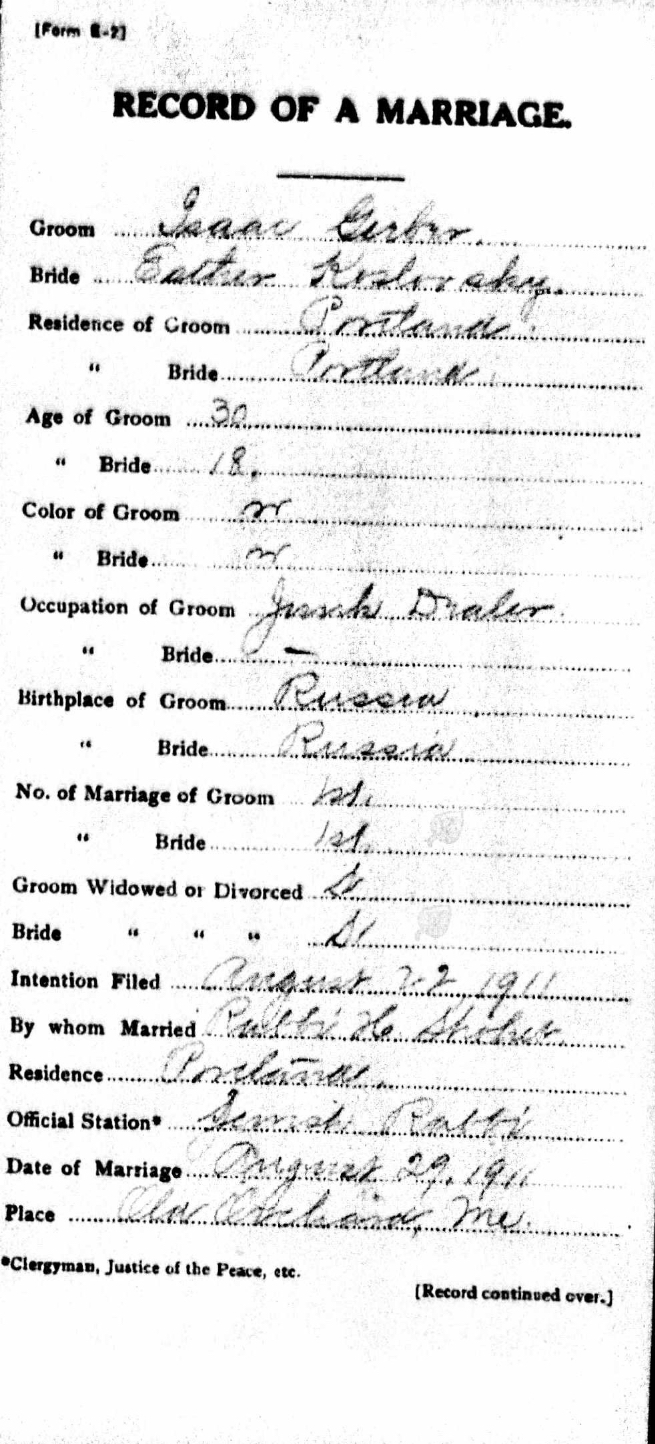 [Form E-2]
RECORD OF A MARRIAGE.
Groom Isaac Gerber.
Bride Esther Koslovsky.
Residence of Groom Portland.
" Bride Portland.
Age of Groom 30
" Bride 18.
Color of Groom w
" Bride w
Occupation of Groom Junk Dealer.
" Bride —
Birthplace of Groom Russia
" Bride Russia
No. of Marriage of Groom 1st.
" Bride 1st.
Groom Widowed or Divorced
Bride " " "
Intention Filed August 22, 1911
By whom Married Rabbi H. Shohet
Residence Portland.
Official Station* Jewish Rabbi
Date of Marriage August 29, 1911
Place Old Orchard, Me.
*Clergyman, Justice of the Peace, etc.
[Record continued over.]